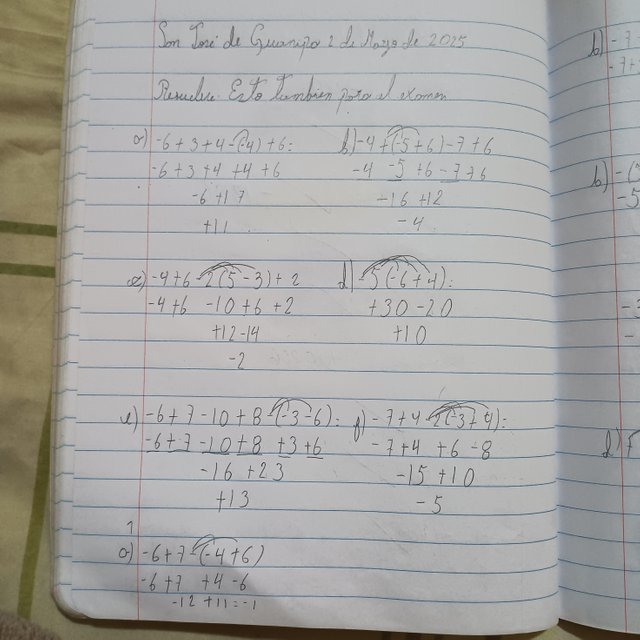 San José de Guanipa 2 de Mayo de 2025
Resuelve Esto Tambien para el examen
a) -6+3+4-(-4)+6=
-6+3+4 +4+6
-6+17
+11
b) -4+(-5+6)-7+6
-4 -5+6-7+6
-16+12
-4
c) -4+6-2(5-3)+2
-4+6 -10+6+2
+12-14
-2
d) -5(-6+4)=
+30-20
+10
e) -6+7-10+8-(-3-6)=
-6+7-10+8+3+6
-16+23
+13
f) -7+4-2(-3+4)=
-7+4+6-8
-15+10
-5
1
a) -6+7-(-4+6)
-6+7 +4-6
-12+11=-1
b) -7
-7+
b) -6
-5
-3
-
d)